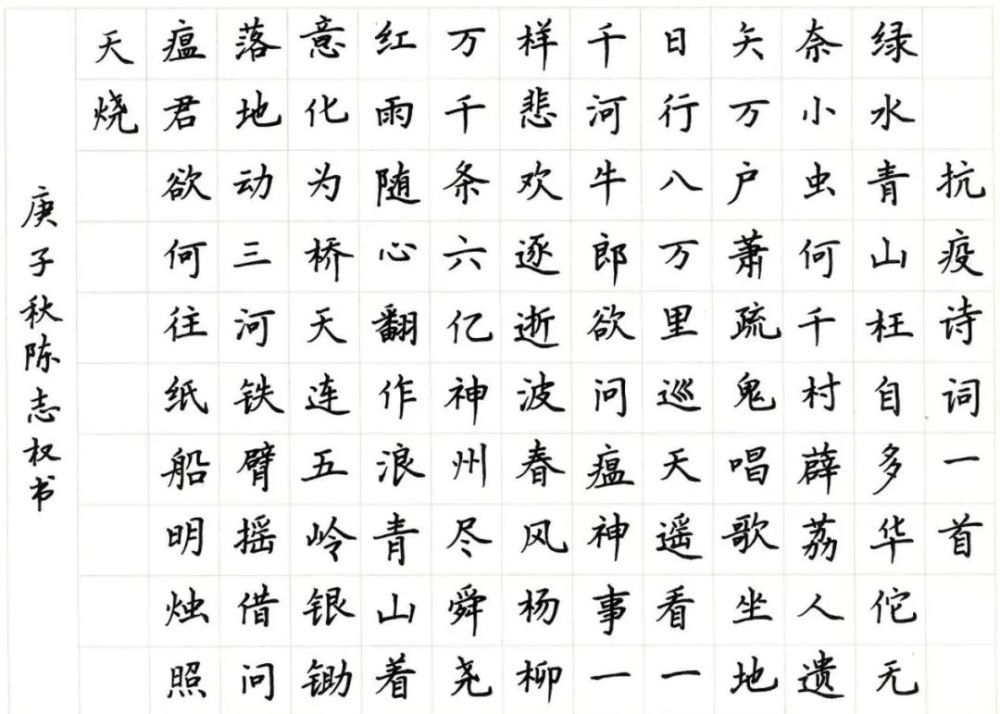 抗疫诗词一首
绿水青山枉自多华佗无
奈小虫何千村薜荔人遗
矢万户萧疏鬼唱歌坐地
日行八万里巡天遥看一
千河牛郎欲问瘟神事一
样悲欢逐逝波春风杨柳
万千条六亿神州尽舜尧
红雨随心翻作浪青山着
意化为桥天连五岭银锄
落地动三河铁臂摇借问
瘟君欲何往纸船明烛照
天烧
庚子秋陈志权书